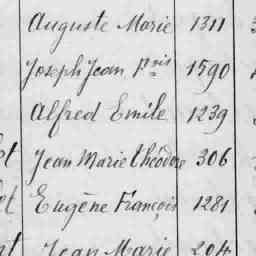 Auguste Marie 1311
Joseph Jean Pre nis 1590
Alfred Emile 1239
et Jean Marie théodore 306
et Eugène François 1281
nt Jean Marie 204